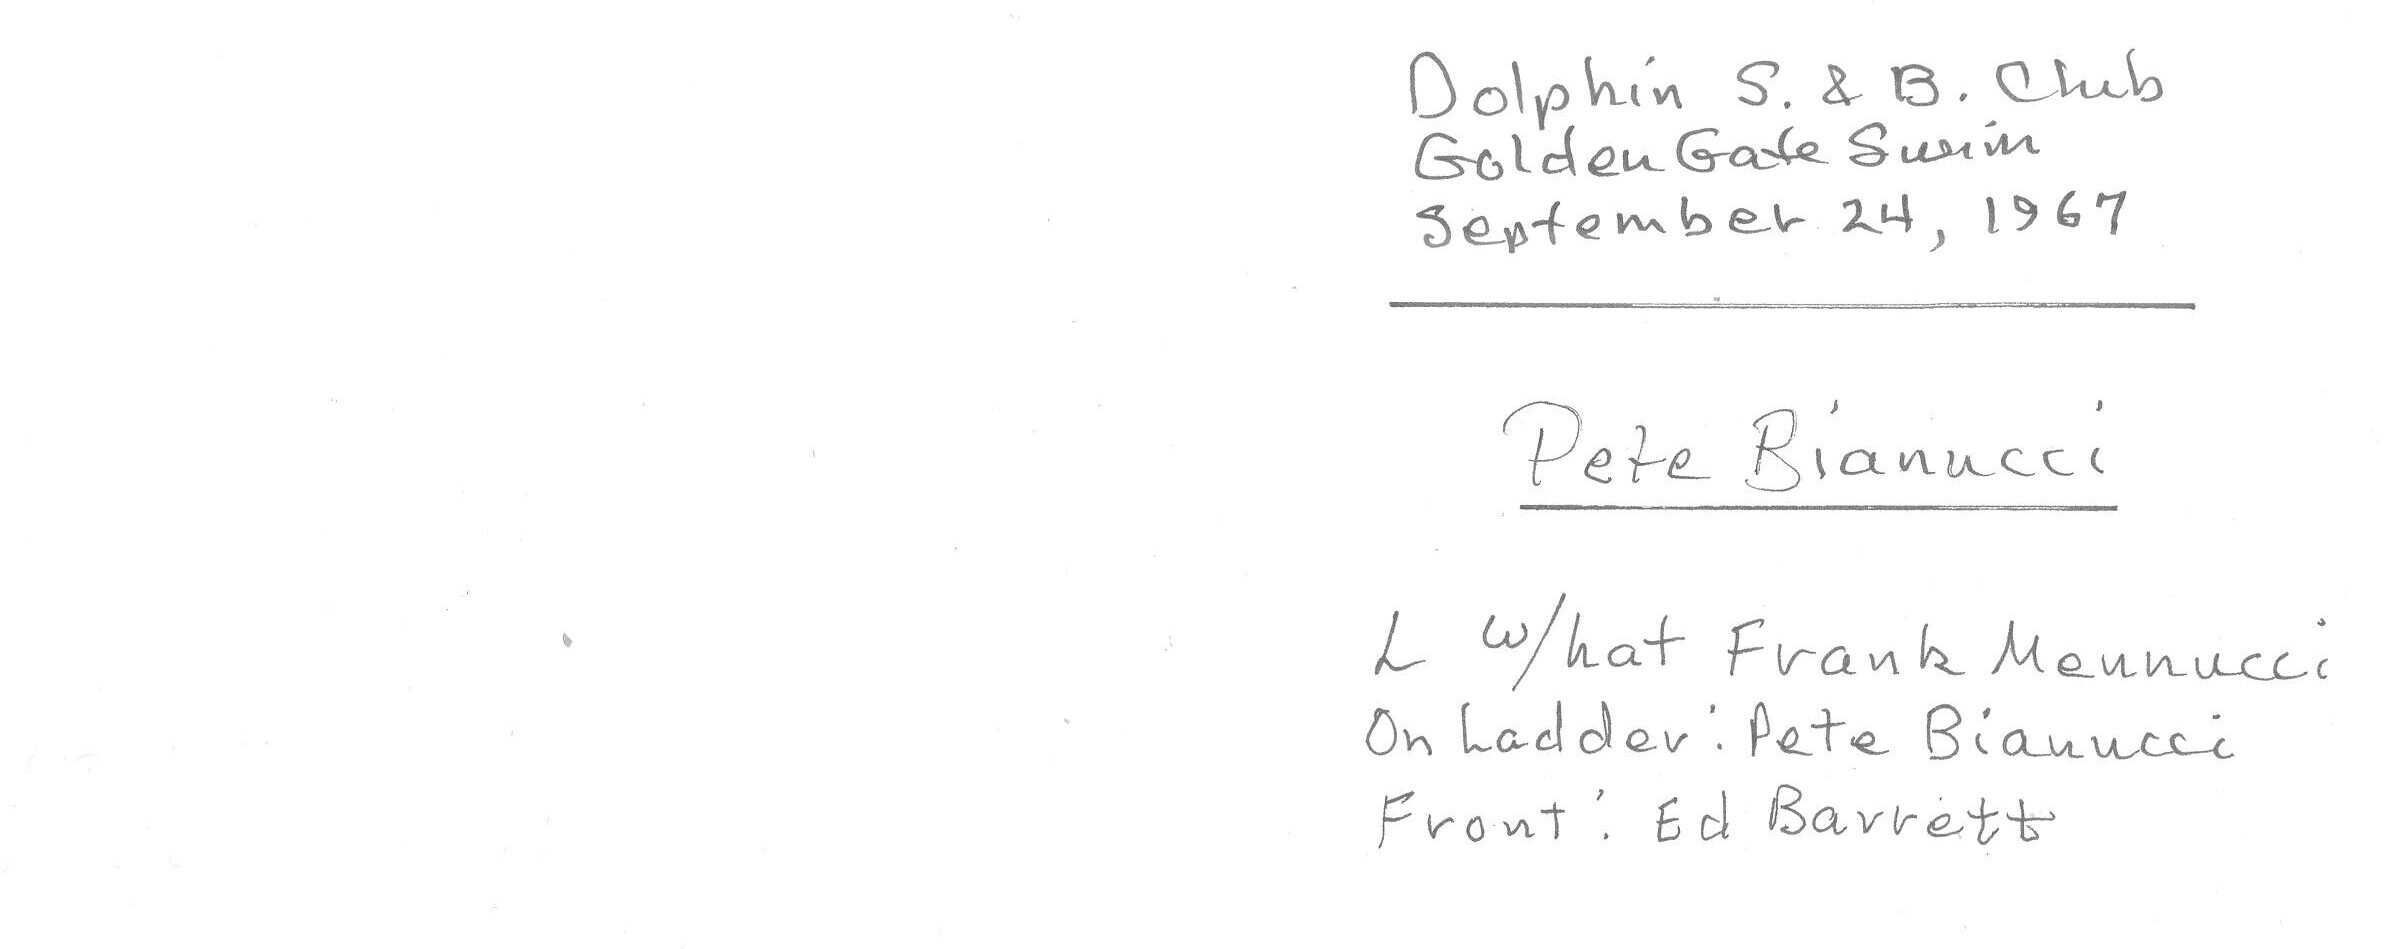 Dolphin S. & B. Club
Golden Gate Swim
September 24, 1967
Pete Bianucci
L w/hat Frank Mennucci
On Ladder: Pete Bianucci
Front: Ed Barrett